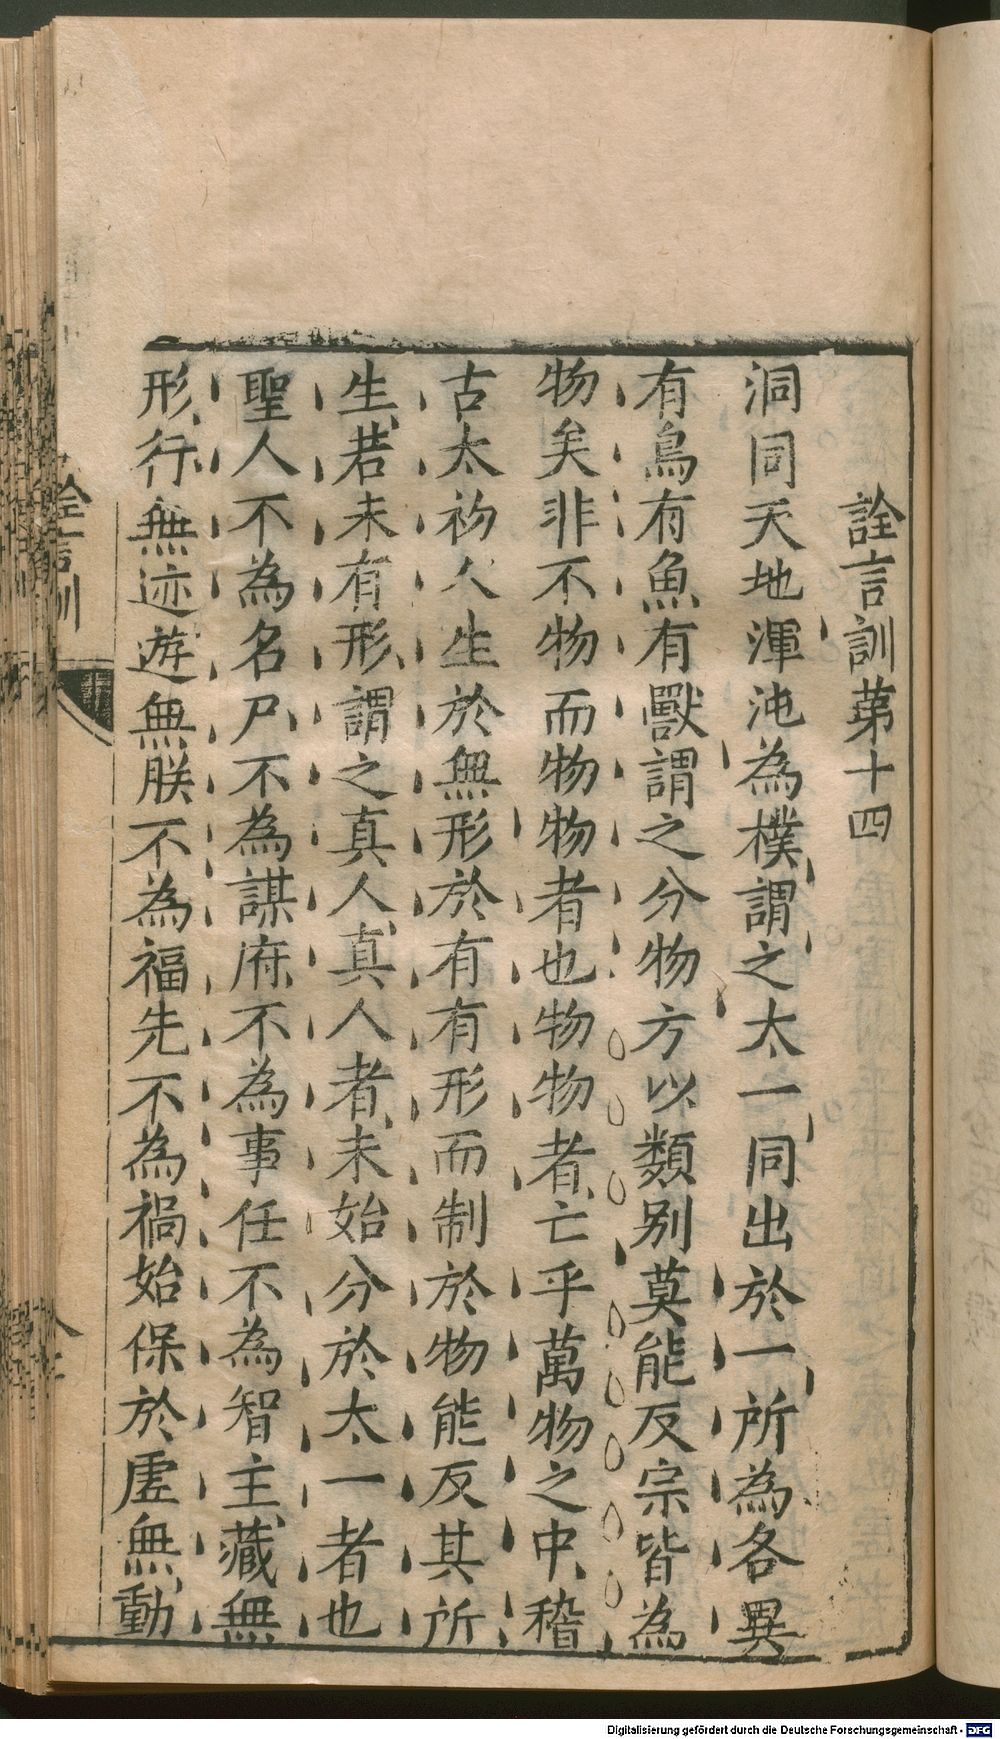 詮言訓苐十四
洞同天地渾沌為樸謂之太一同出於一所為各異
有鳥有魚有獸謂之分物方以類别莫能反宗皆為
物矣非不物而物物者也物物者亡乎萬物之中稽
古太初人生於無形於有有形而制於物能反其所
生若未有形謂之真人真人者未始分於太一者也
聖人不為名尸不為謀府不為事任不為智主藏無
形行無迹遊無朕不為福先不為禍始保於虚無動
詮言訓
Digitalisierung gefördert durch die Deutsche Forschungsgemeinschaft - DFG